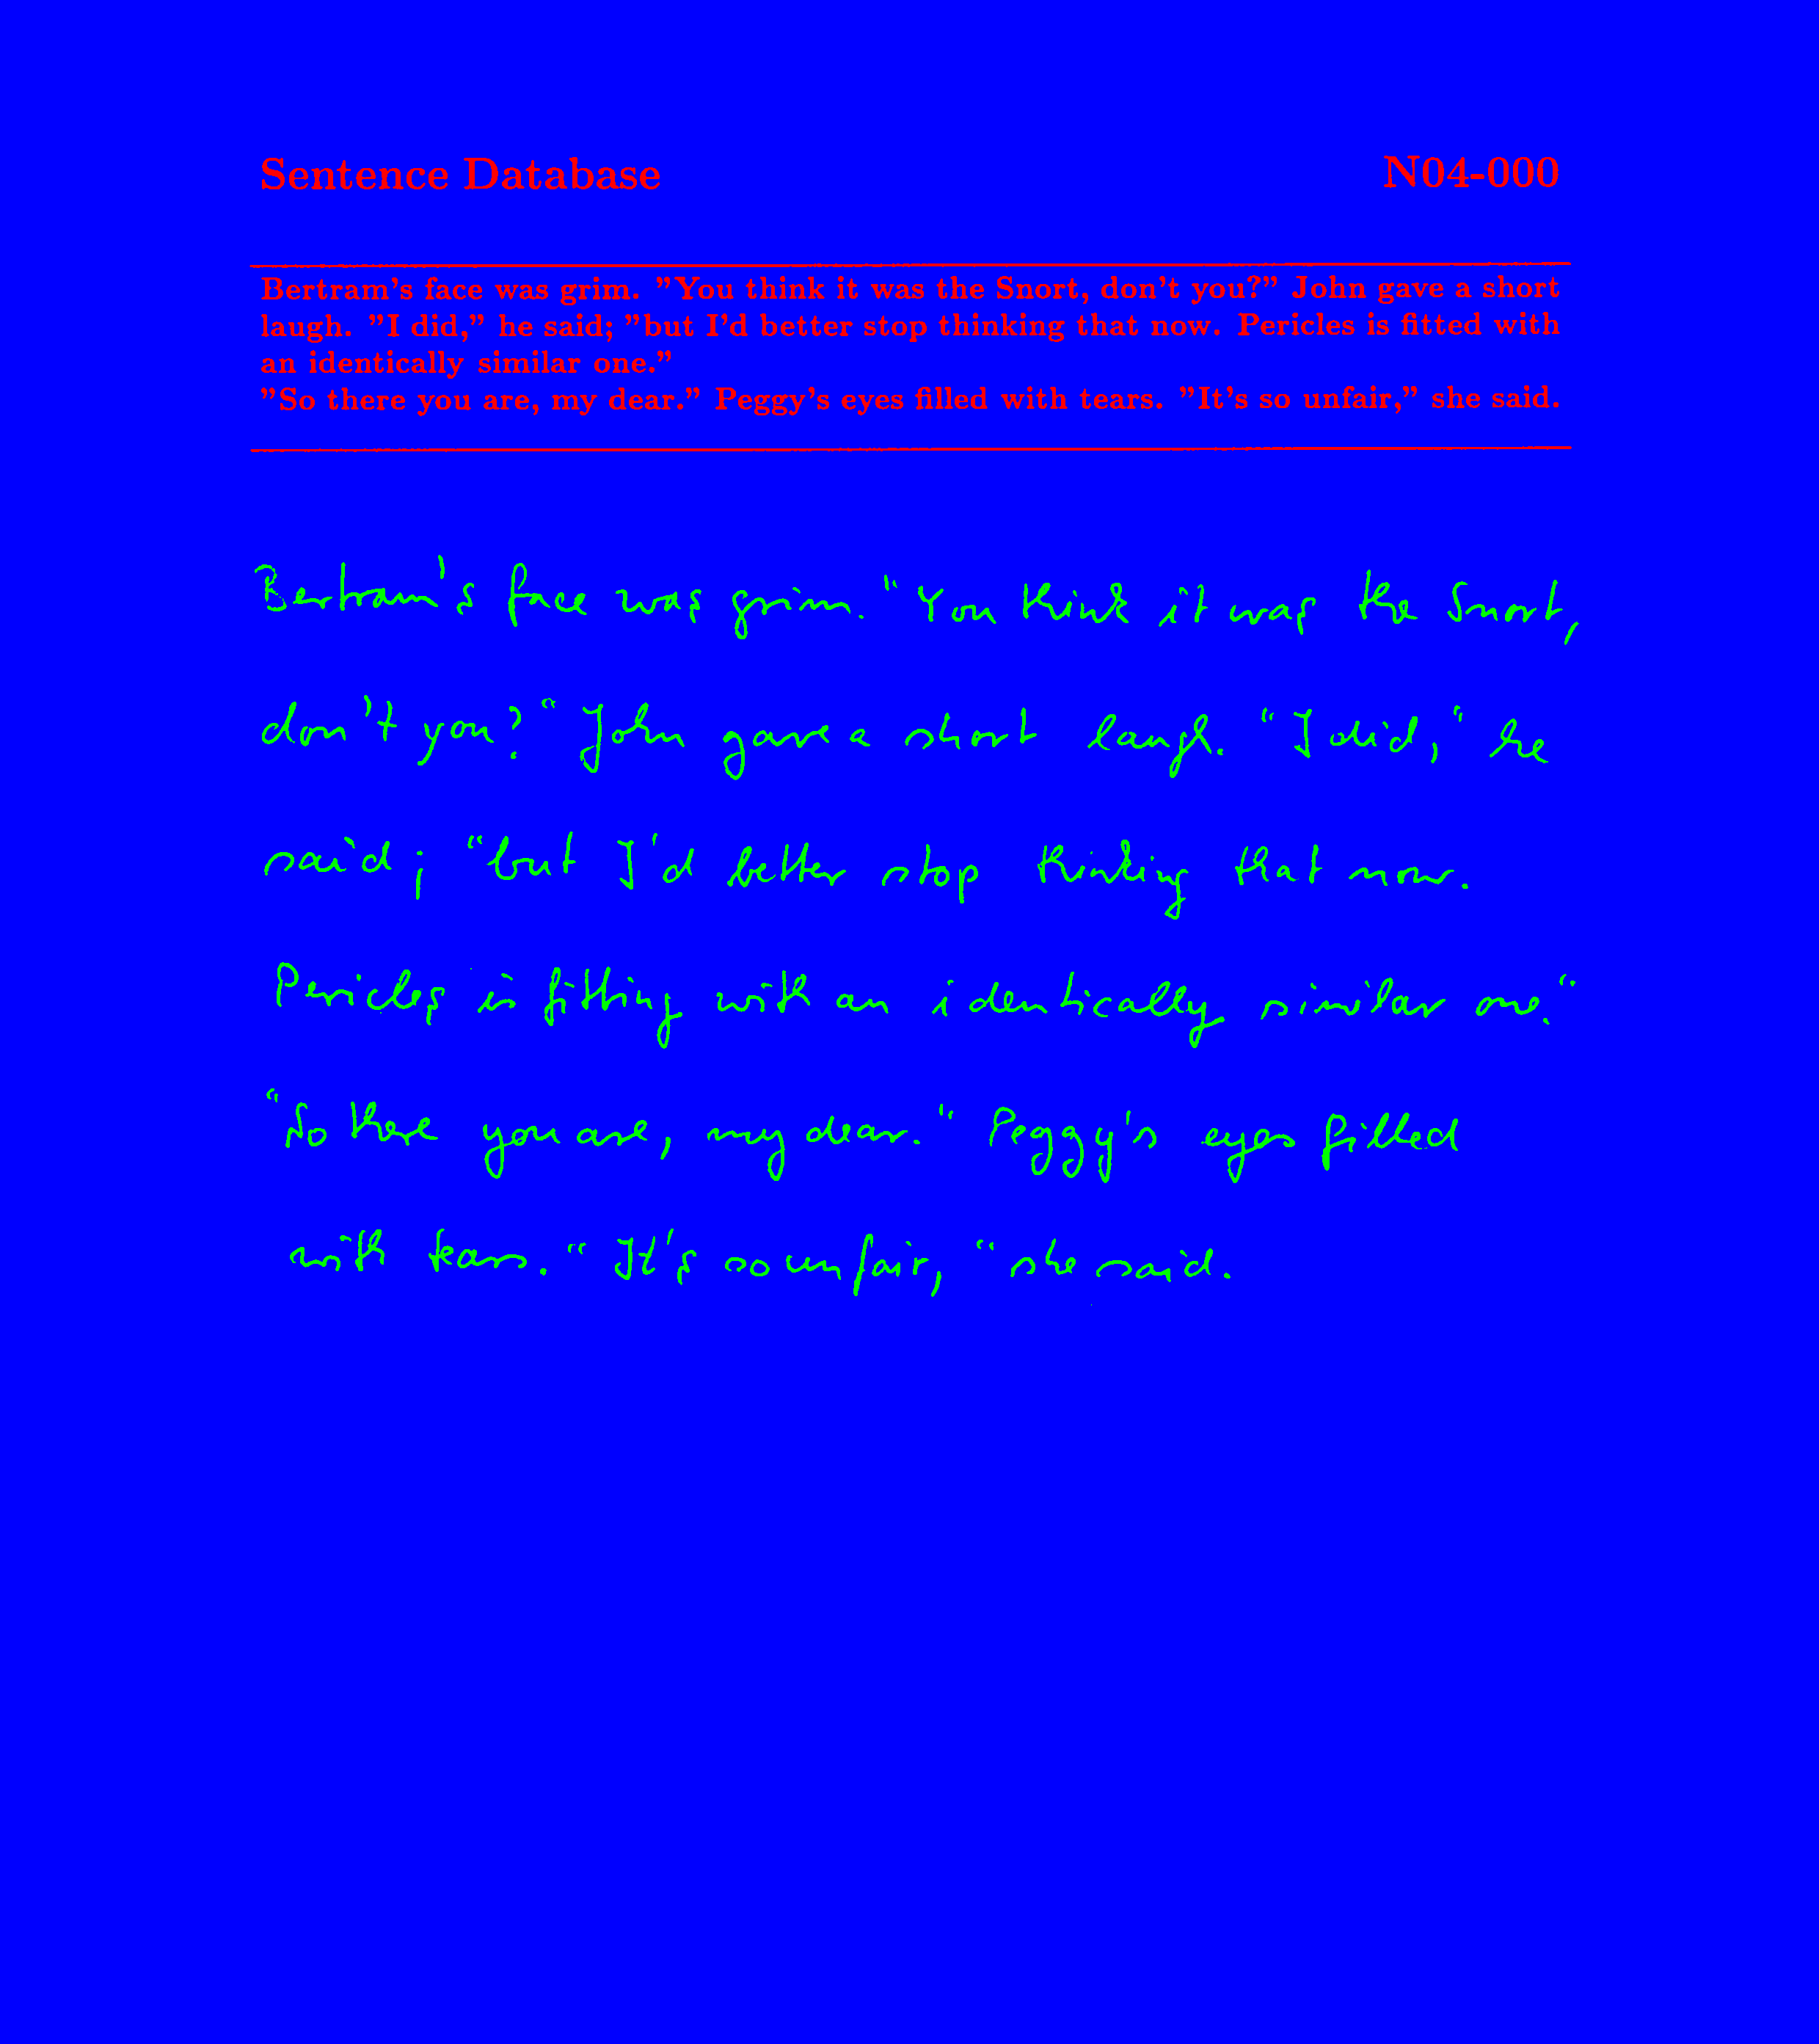 Sentence Database N04-000
Bertram's face was grim. "You think it was the Snort, don't you?" John gave a short
laugh. "I did," he said; "but I'd better stop thinking that now. Pericles is fitted with
an identically similar one."
"So there you are, my dear." Peggy's eyes filled with tears. "It's so unfair," she said.
Bertram's face was grim. "You think it was the Snort,
don't you?" John gave a short laugh. "I did," he
said; "but I'd better stop thinking that now.
Pericles is fitting with an identically similar one."
"So there you are, my dear." Peggy's eyes filled
with tears. "It's so unfair," she said.